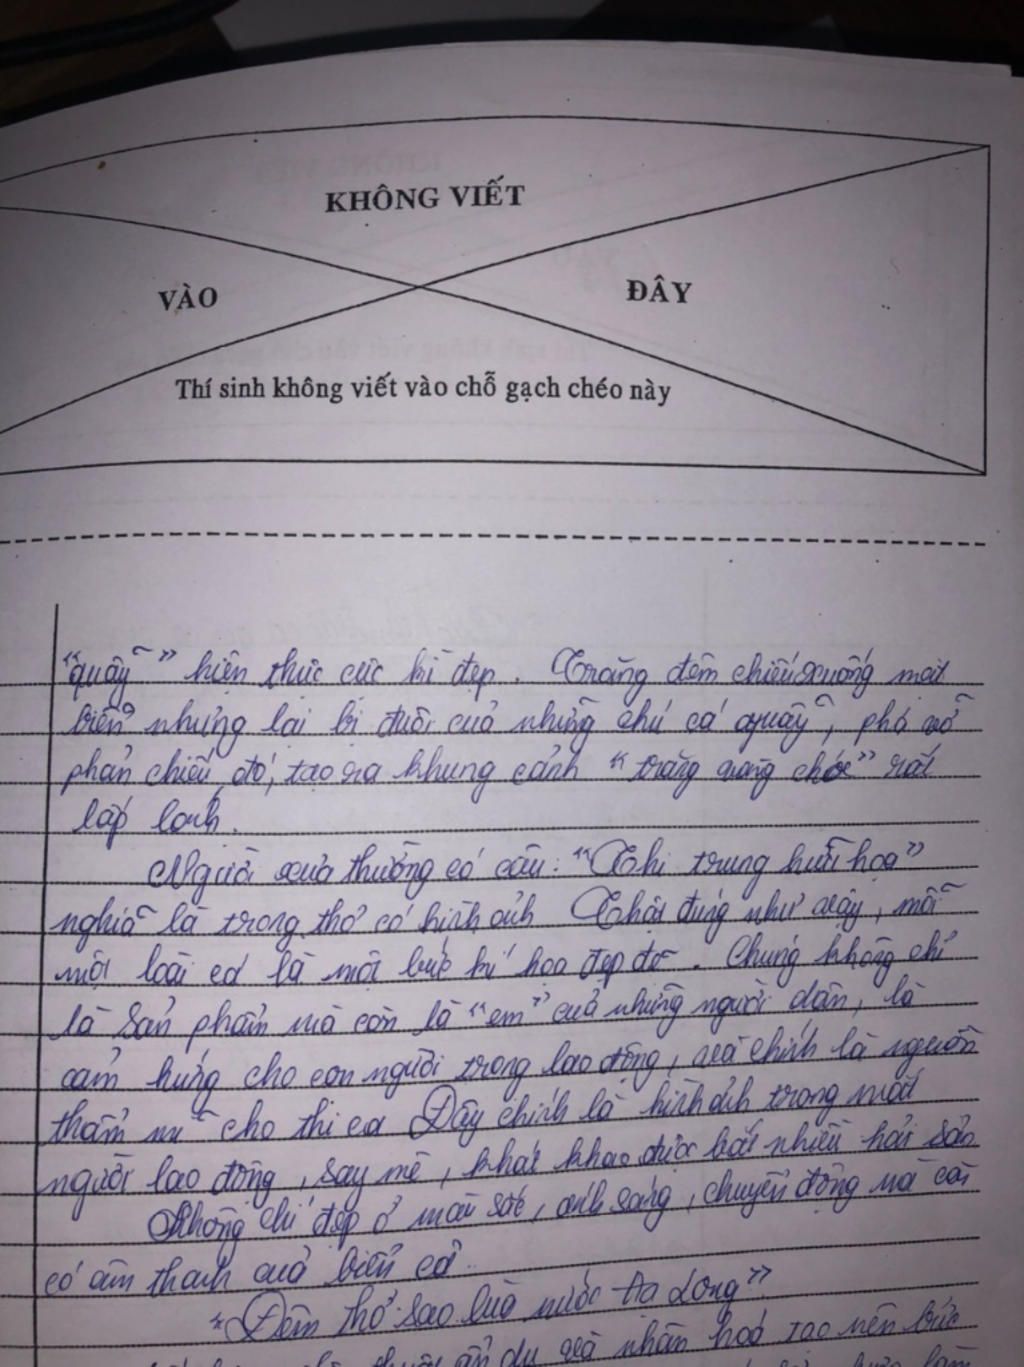 KHÔNG VIẾT
VÀO ĐÂY
Thí sinh không viết vào chỗ gạch chéo này
"quẫy" hiện thực cực kì đẹp. Trăng đêm chiếu xuống mặt
biển nhưng lại bị đuôi của những chú cá quẫy, phá vỡ
phản chiếu đó, tạo ra khung cảnh "trăng vàng choé" rất
lấp lánh.
Người xưa thường có câu: "Thi trung hữu hoạ"
nghĩa là trong thơ có hình ảnh Thật đúng như vậy, mỗi
một loài cá là một bức kí hoạ đẹp đẽ. Chúng không chỉ
là sản phẩm mà còn là "em" của những người dân, là
cảm hứng cho con người trong lao động, và chính là nguồn
thẩm mĩ cho thi ca Đây chính là hình ảnh trong mắt
người lao động, say mê, khát khao được bắt nhiều hải sản
Không chỉ đẹp ở màu sắc, ánh sáng, chuyển động mà còn
có âm thanh của biển cả.
"Đêm thở: sao lùa nước Hạ Long"
ẩn dụ và nhân hoá tạo nên bức